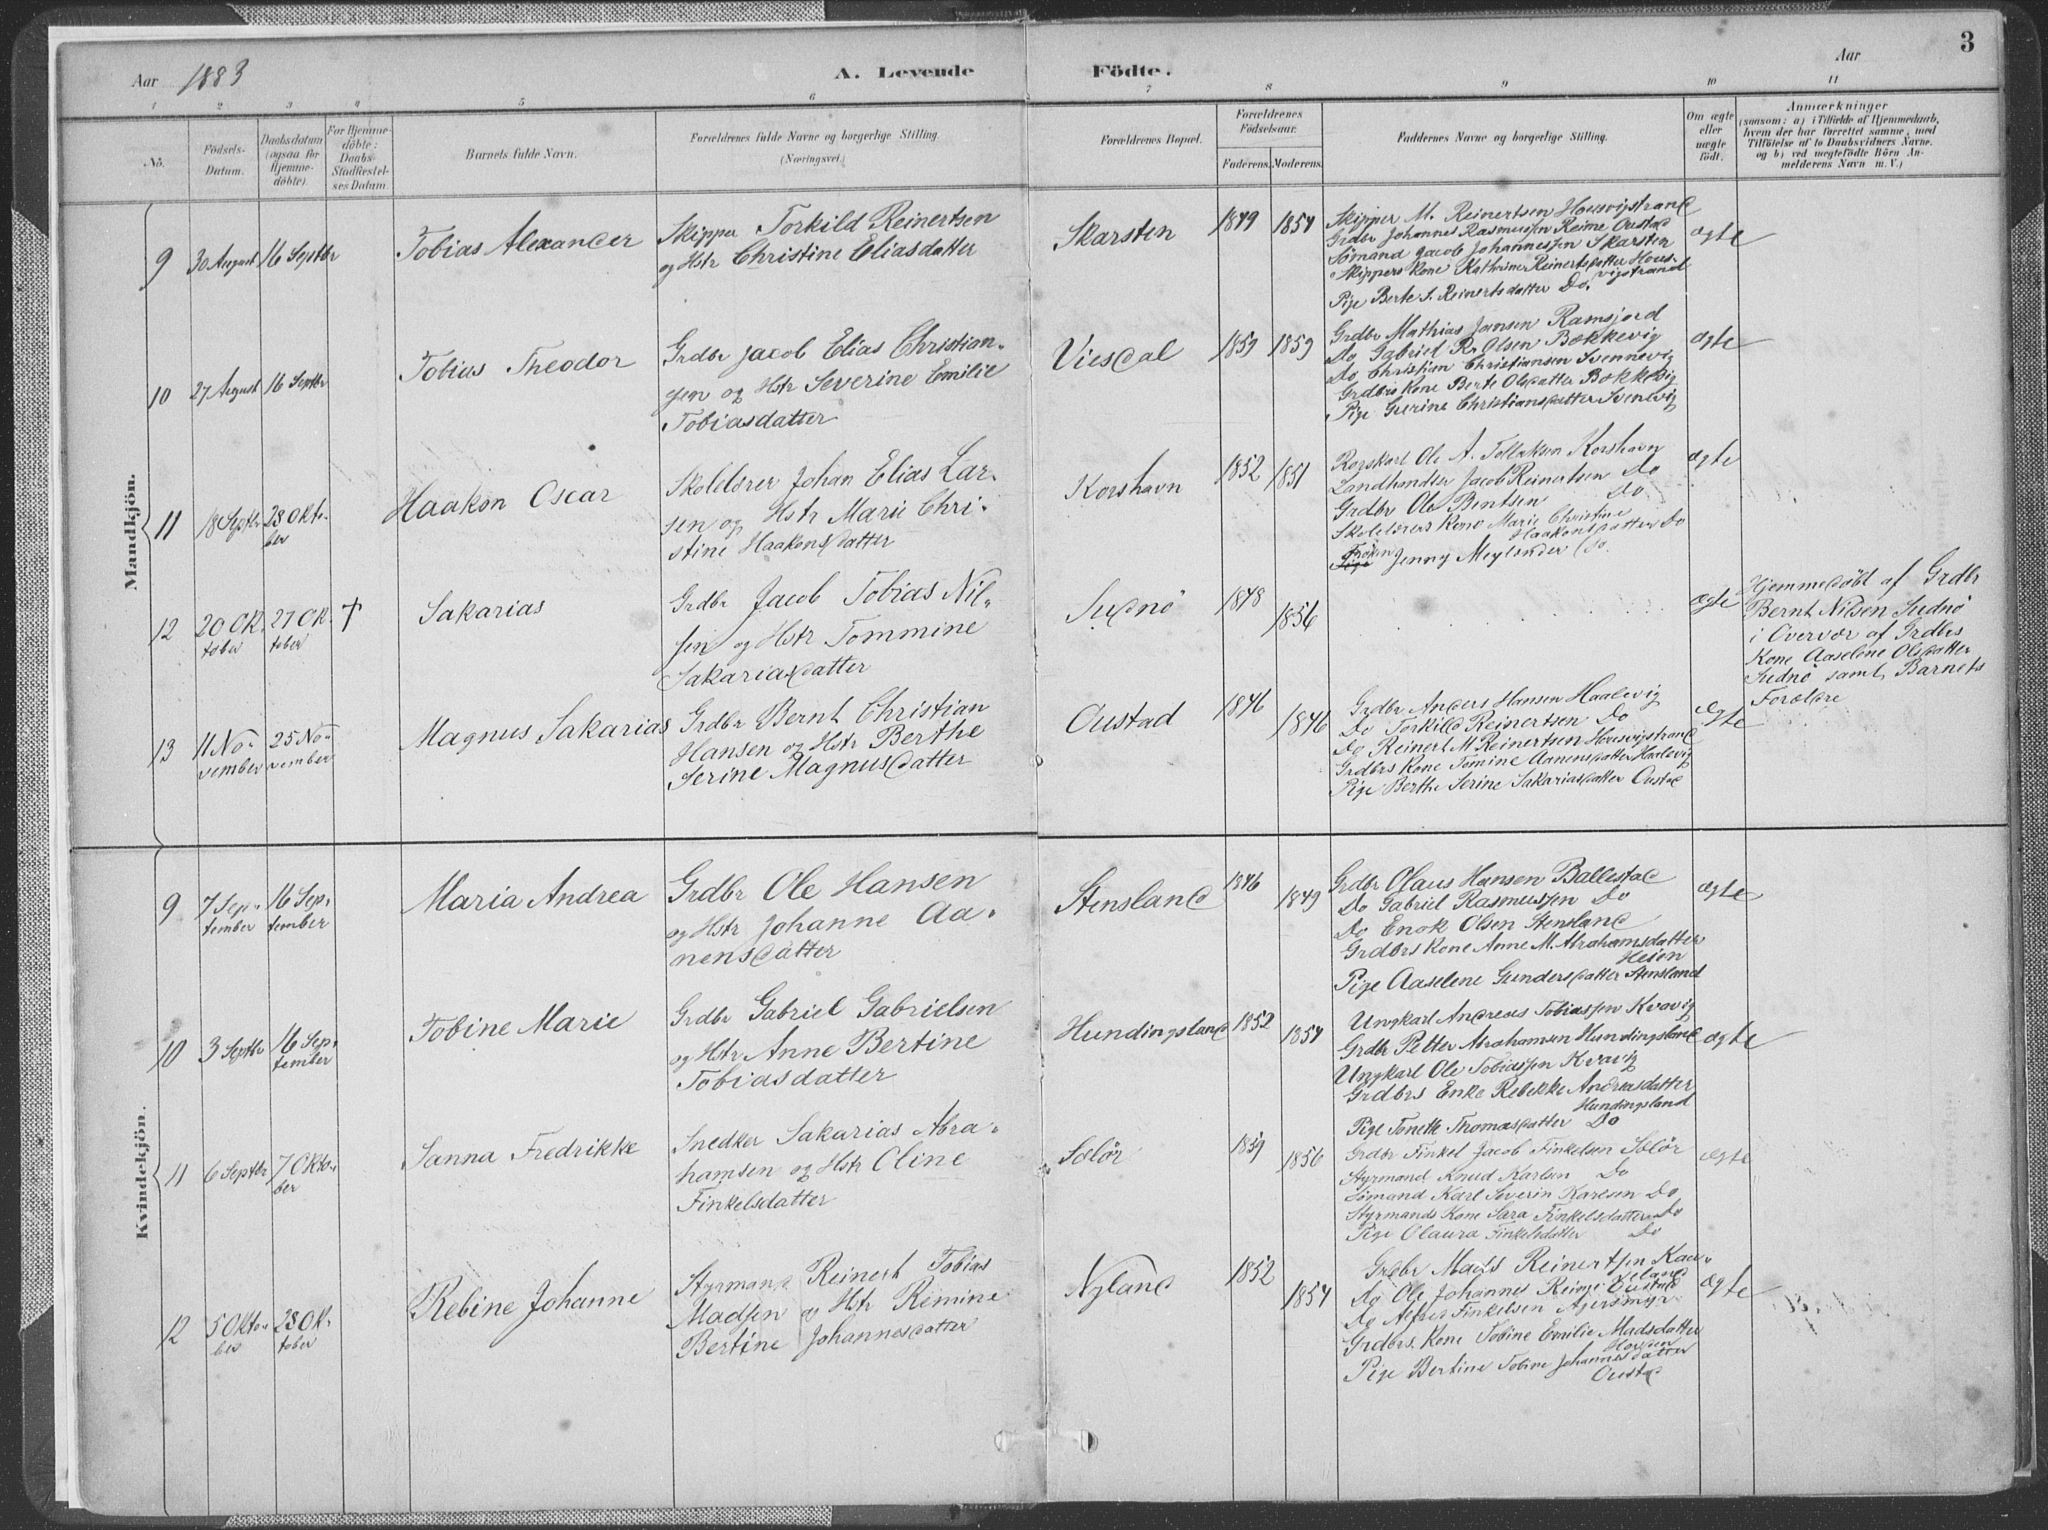 3
Aar 1883
A. Levende Födte.
Aar
1 2 3 4 5 6 7 8 9 10 11
No.
Födsels-Datum.
Daabsdatum (ogsaa for Hjemme-döbte).
For Hjemme-döbte: Daabs-Stadfæstel-ses Datum.
Barnets fulde Navn.
Forældrenes fulde Navne og borgerlige Stilling.
(Næringsvei.)
Forældrenes Bopæl.
Forældrenes Födselsaar.
Faderens. Moderens.
Faddernes Navne og borgerlige Stilling.
Om ægte eller uægte födt.
Anmærkninger
(saasom: a) i Tilfælde af Hjemmedaab, hvem der har forrettet samme, med Tilföielse af to Daabsvidners Navne. og b) ved uægtefödte Börn Anmelderens Navn m. V.)
Mandkjön.
9 30 August 16 Septbr Tobias Alexander
Skipper Torkild Reinertsen
og Hstr Christine Eliasdatter
Skarsten 1849 1854
Skipper M. Reinertsen Housvigstrand
Grdbr Johannes Rasmussen Reime Oustad
Sømand Jacob Johannessen Skarsten
Skippers Kone Kathrine Reinertsdatter Hous-
vigstrand
Pige Berte S. Reinertsdatter Do.
ægte
10 27 August 16 Septbr Tobias Theodor
Grdbr Jacob Elias Christian-
sen og Hstr Severine Emilie
Tobiasdatter
Viesdal 1859 1859
Grdbr Mathias Jansen Ramsjord
Do Gabriel R. Olsen Bøkkevig
Do Christian Christiansen Svennevig
Grdbrs Kone Berte Olsdatter Bøkkevig
Pige Gurine Christiansdatter Svenevig
ægte
11 18 Septbr 28 Okto-
ber
Haakon Oscar
Skolelærer Johan Elias Lar-
sen og Hstr Marie Chri-
stine Haakonsdatter
Korshavn 1852 1851
Rorskarl Ole A. Tollaksen Korshavn
Landhandler Jacob Reinertsen Do
Grdbr Ole Bentsen Do
Skolelærers Kone Marie Christine
Haakonsdatter Do
Frøken
Pige Jenny Meylænder Do.
ægte
12 20 Ok-
tober
27 Ok-
tober
+ Sakarias
Grdbr Jacob Tobias Nil-
sen og Hstr Tommine
Sakariasdatter
Sudnø 1848 1856
ægte
Hjemmedøbt af Grdbr
Bernt Nilsen Sudnø
i Overvær af Grdbrs
Kone Aaselene Olsdatter
Sudnø samt Barnets
Forældre
13 11 No-
vember
25 No-
vember
Magnus Sakarias
Grdbr Bernt Christian
Hansen og Hstr Berthe
Serine Magnusdatter
Oustad 1846 1846
Grdbr Anders Hansen Haalevig
Do Torkild Reinertsen Do
Do Reinert M Reinertsen Housvigstrand
Grdbrs Kone Tomine Aanensdatter Haalevig
Pige Berthe Serine Sakariasdatter Oustad
ægte
Kvindekjön.
9 7 Sep-
tember
16 Sep-
tember
Maria Andrea
Grdbr Ole Hansen
og Hstr Johanne Aa-
nensdatter
Stensland 1846 1849
Grdbr Olaus Hansen Ballestad
Do Gabriel Rasmussen Do
Do Enok Olsen Stensland
Grdbrs Kone Anne M. Abrahamsdatter
Pige Aaselene Gundersdatter Stensland
ægte
10 3 Septbr 16 Sep-
tember
Tobine Marie
Grdbr Gabriel Gabrielsen
og Hstr Anne Bertine
Tobiasdatter
Hundingsland 1852 1854
Ungkarl Andreas Tobiassen Kvavig
Grdbr Petter Abrahamsen Hundingsland
Ungkarl Ole Tobiassen Kvavig
Grdbrs Enke Rebekke Andreasdatter
Hundingsland
Pige Tonette Thomasdatter Do
ægte
11 6 Septbr 7 Okto-
ber
Sanna Fredrikke
Snedker Sakarias Abra-
hamsen og Hstr Oline
Finkelsdatter
Sælør 1859 1856
Grdbr Finkel Jacob Finkelsen Sælør
Styrmand Knud Karlsen Do
Sømand Karl Severin Karlsen Do
Styrmands Kone Sara Finkelsdatter Do
Pige Olaura Finkelsdatter Do
ægte
12 5 Okto-
ber
28 Ok-
tober
Rebine Johanne
Styrmand Reinert Tobias
Madsen og Hstr Remine
Bertine Johannesdatter
Nyland 1852 1854
Grdbr Mads Reinertsen Kau-
Do Ole Johannes Reime Oustad
Do Alfred Finkelsen Agersmyr
Grdbrs. Kone Tobine Emilie Madsdatter
Pige Bertine Tobine Johannesdatter
Oustad
ægte